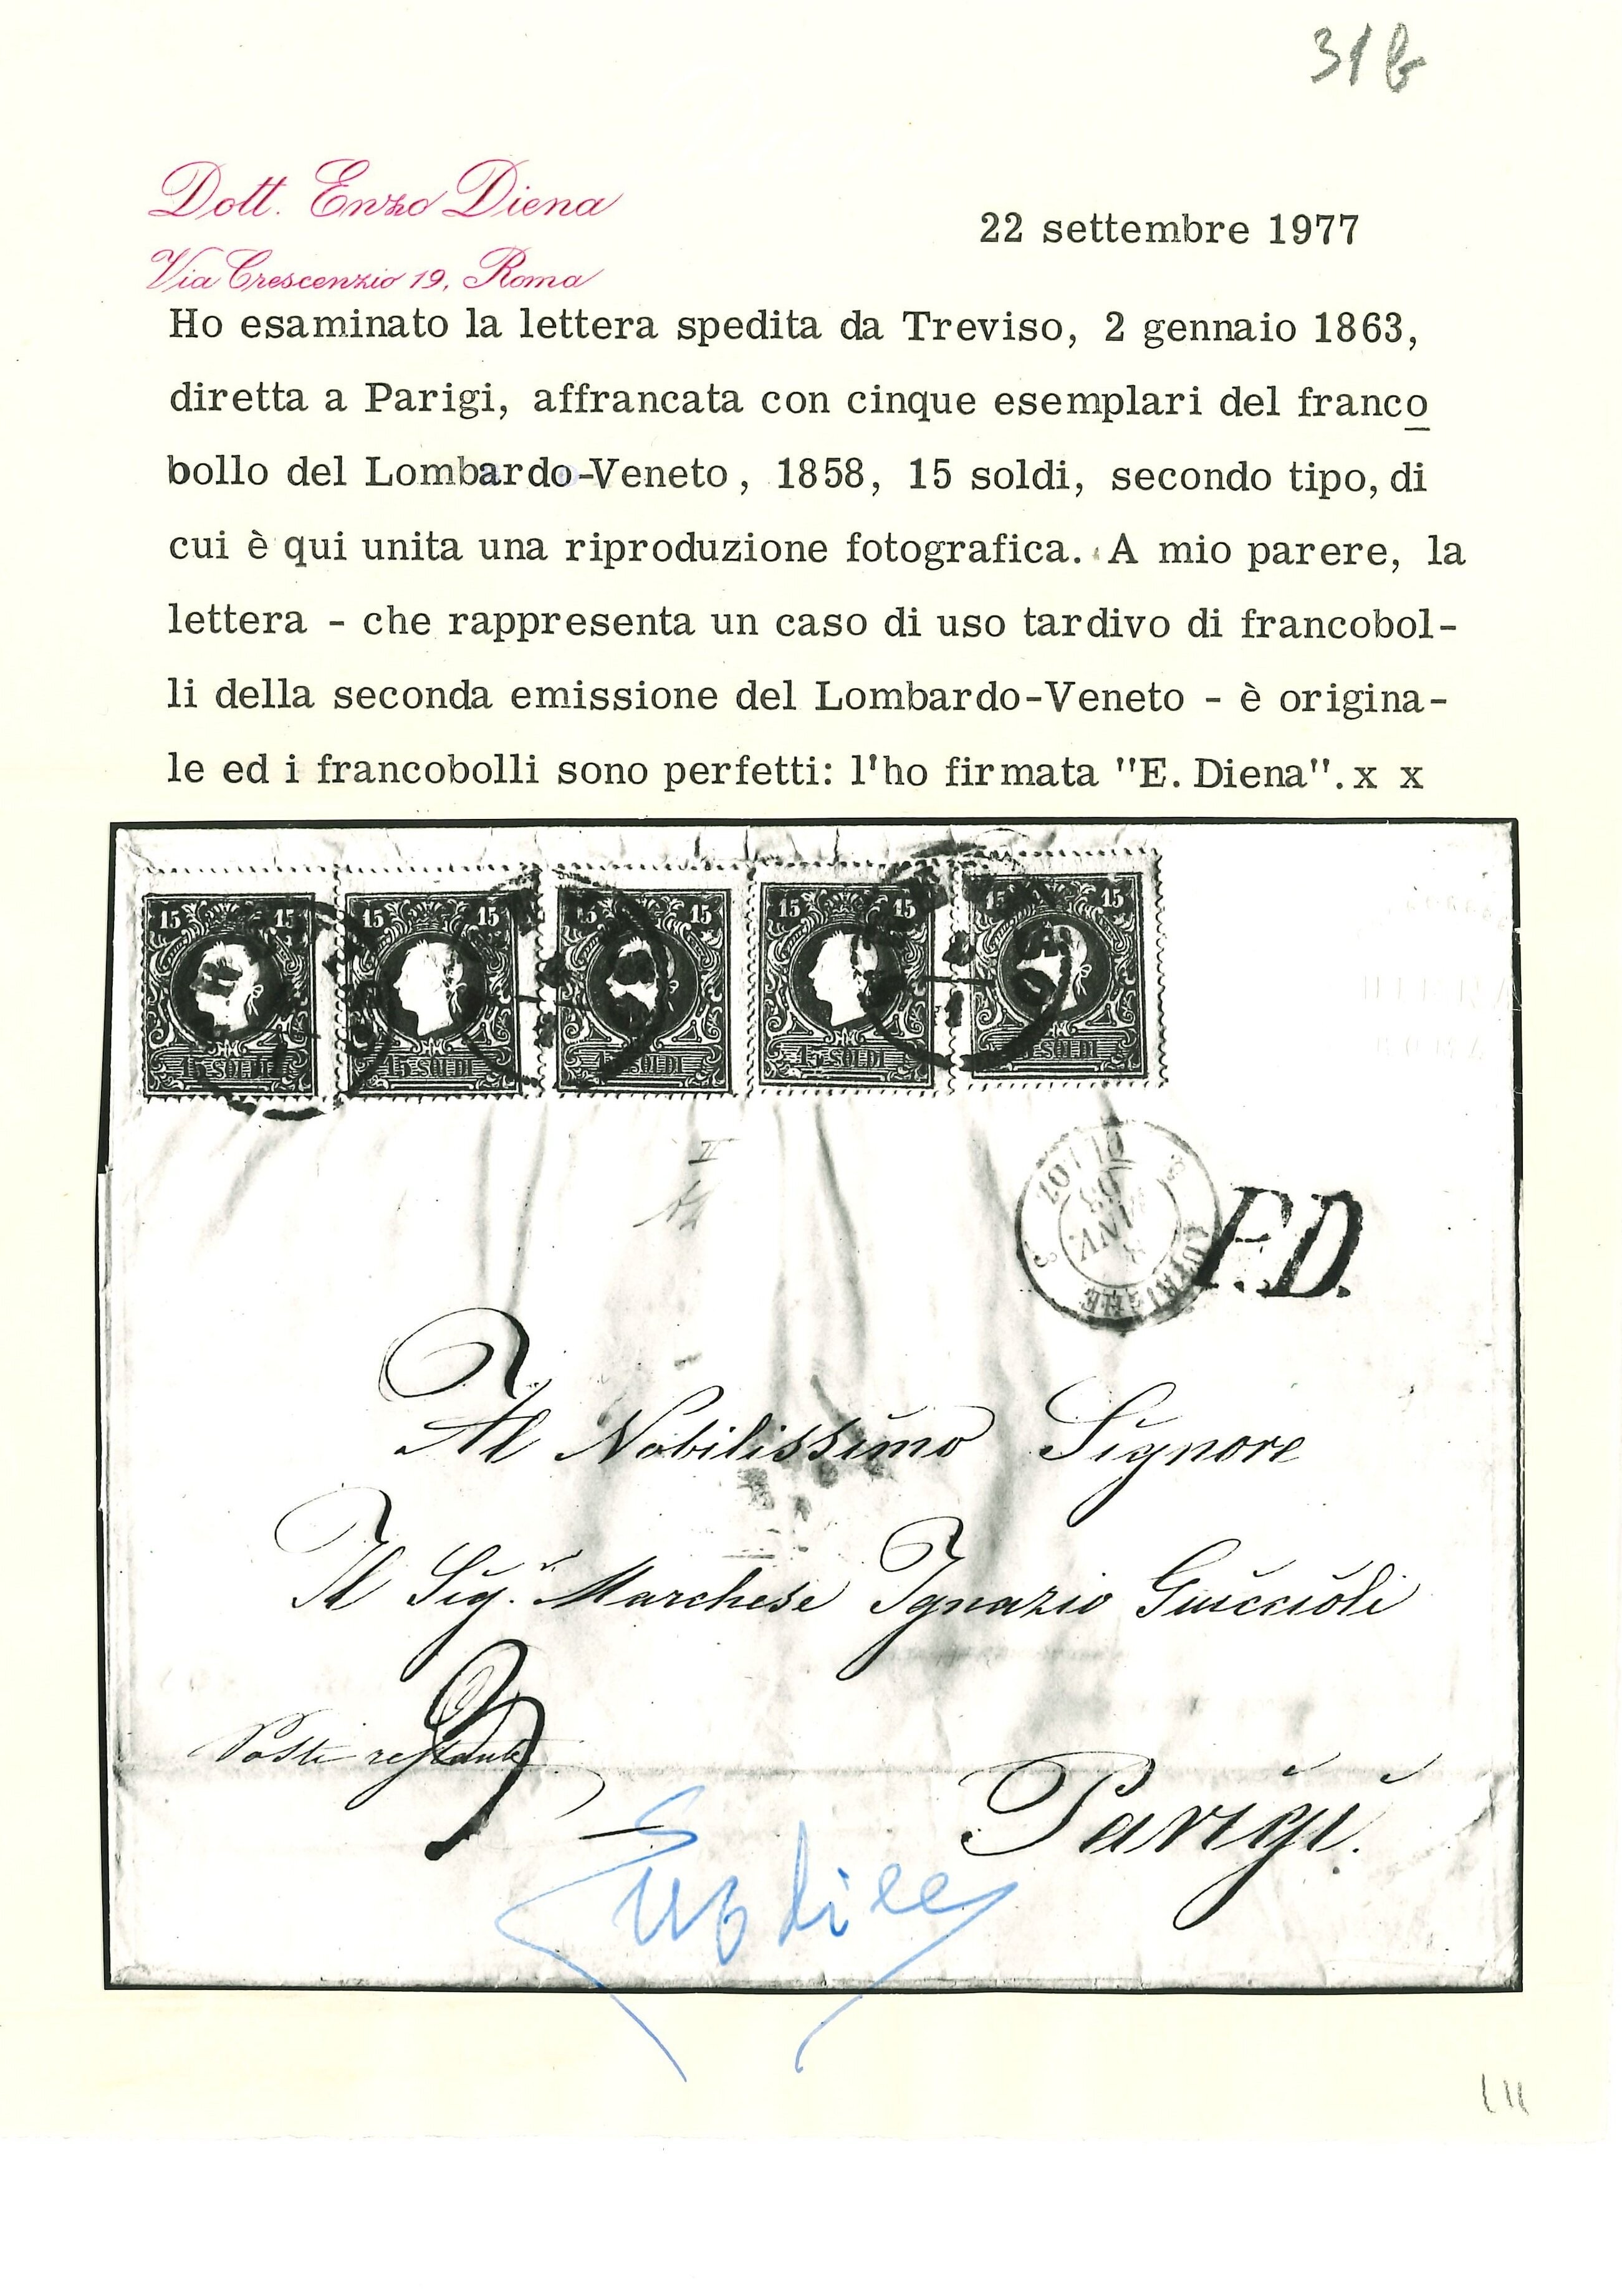 31 b
Dott. Enzo Diena
22 settembre 1977
Via Crescenzio 19, Roma
Ho esaminato la lettera spedita da Treviso, 2 gennaio 1863,
diretta a Parigi, affrancata con cinque esemplari del franco
bollo del Lombardo-Veneto, 1858, 15 soldi, secondo tipo, di
cui è qui unita una riproduzione fotografica. A mio parere, la
lettera - che rappresenta un caso di uso tardivo di francobol-
li della seconda emissione del Lombardo-Veneto - è origina-
le ed i francobolli sono perfetti: l'ho firmata "E. Diena". x x
15 15 15 15 15 15 15 15 15
15 SOLDI 15 SOLDI 15 SOLDI 15 SOLDI SOLDI
II
AUTRICHE
P.D.
Al Nobilissimo Signore
Il Sig.r Marchese Ignazio Guiccioli
Poste restante
Parigi.